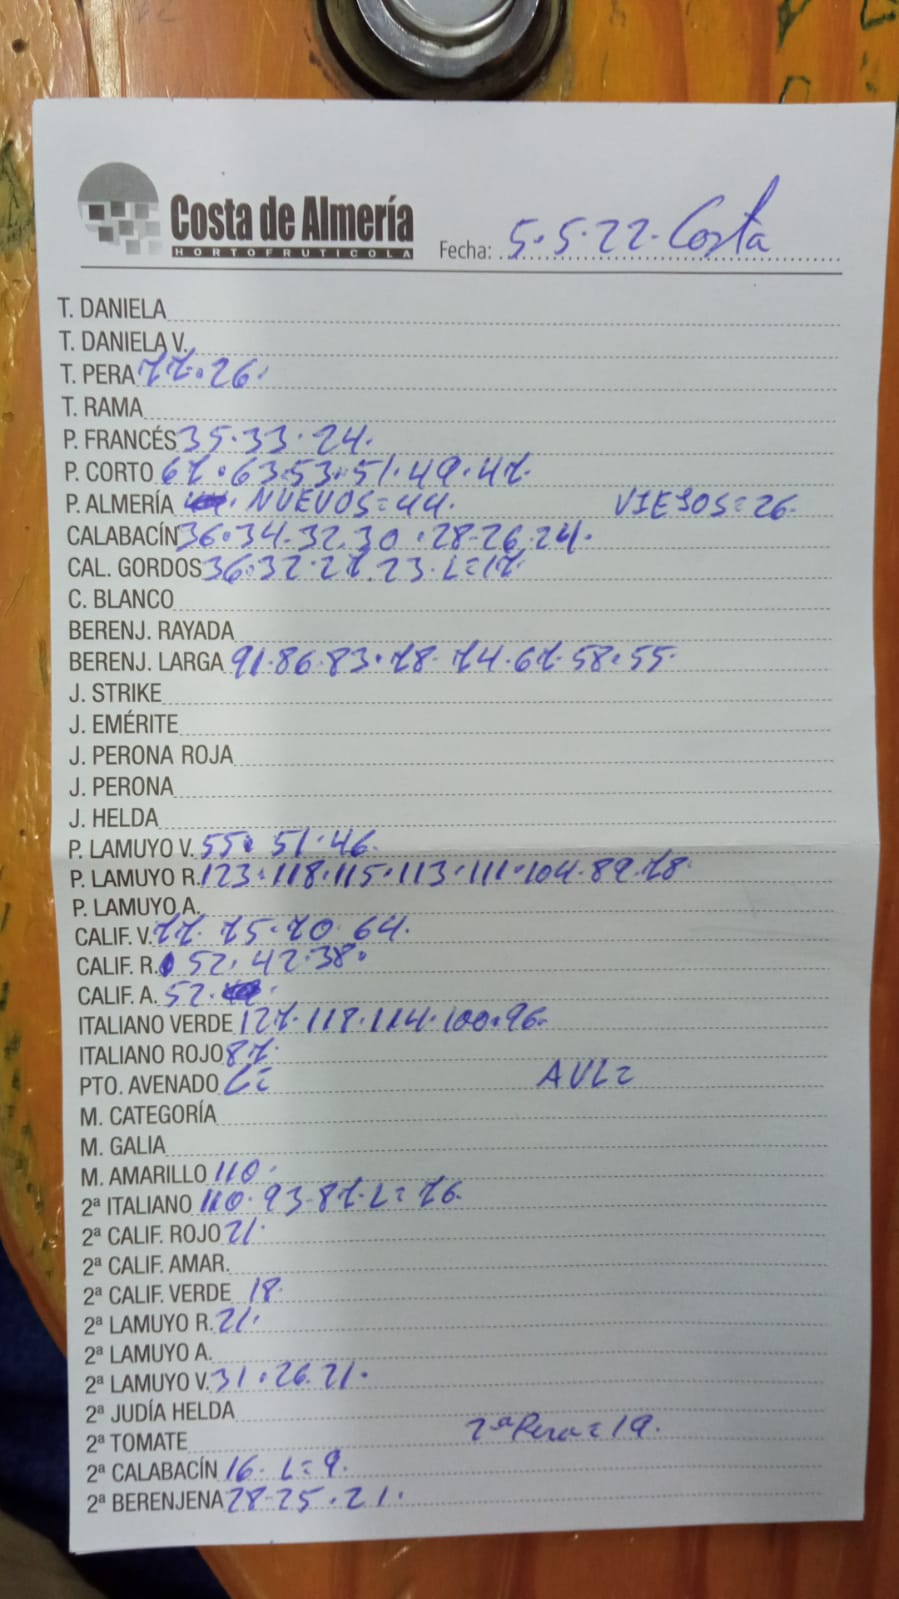 Costa de Almería
HORTOFRUTICOLA
Fecha: 5.5.22. Costa
T. DANIELA
T. DANIELA V.
T. PERA 77.26.
T. RAMA
P. FRANCÉS 35.33.24.
P. CORTO 67.63.53.51.49.47.
P. ALMERÍA . NUEVOS=44. VIESOS=26.
CALABACÍN 36.34.32.30.28-26.24.
CAL. GORDOS 36.32.27.23.L=17.
C. BLANCO
BERENJ. RAYADA
BERENJ. LARGA 91.86.83.78.74.67.58.55.
J. STRIKE
J. EMÉRITE
J. PERONA ROJA
J. PERONA
J. HELDA
P. LAMUYO V. 55.51.46.
P. LAMUYO R. 123.118.115.113.111.104.89.78.
P. LAMUYO A.
CALIF. V. 77.75.70.64.
CALIF. R. 52.42.38.
CALIF. A. 52.
ITALIANO VERDE 127.118.114.100.96.
ITALIANO ROJO 87.
PTO. AVENADO L= AVL=
M. CATEGORÍA
M. GALIA
M. AMARILLO 110.
2ª ITALIANO 110.93.87.L=76.
2ª CALIF. ROJO 21.
2ª CALIF. AMAR.
2ª CALIF. VERDE 18.
2ª LAMUYO R. 21.
2ª LAMUYO A.
2ª LAMUYO V. 31.26.21.
2ª JUDÍA HELDA
2ª TOMATE 2ª Pera=19.
2ª CALABACÍN 16. L=9.
2ª BERENJENA 28-25.21.